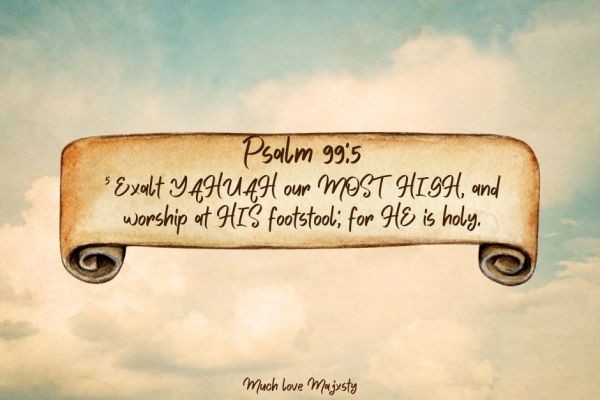 Psalm 99:5
5 Exalt YAHUAH our MOST HIGH, and
worship at HIS footstool; for HE is holy.
Much love Majxsty